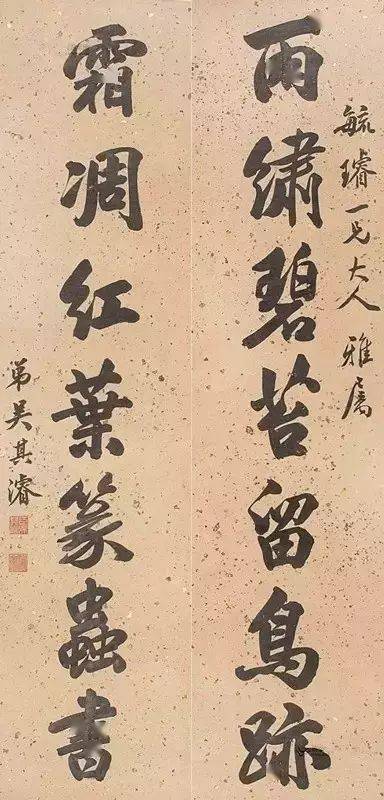 毓璿一兄大人雅属
雨繡碧苔留鳥跡
霜凋红葉篆蟲書
弟吴其濬